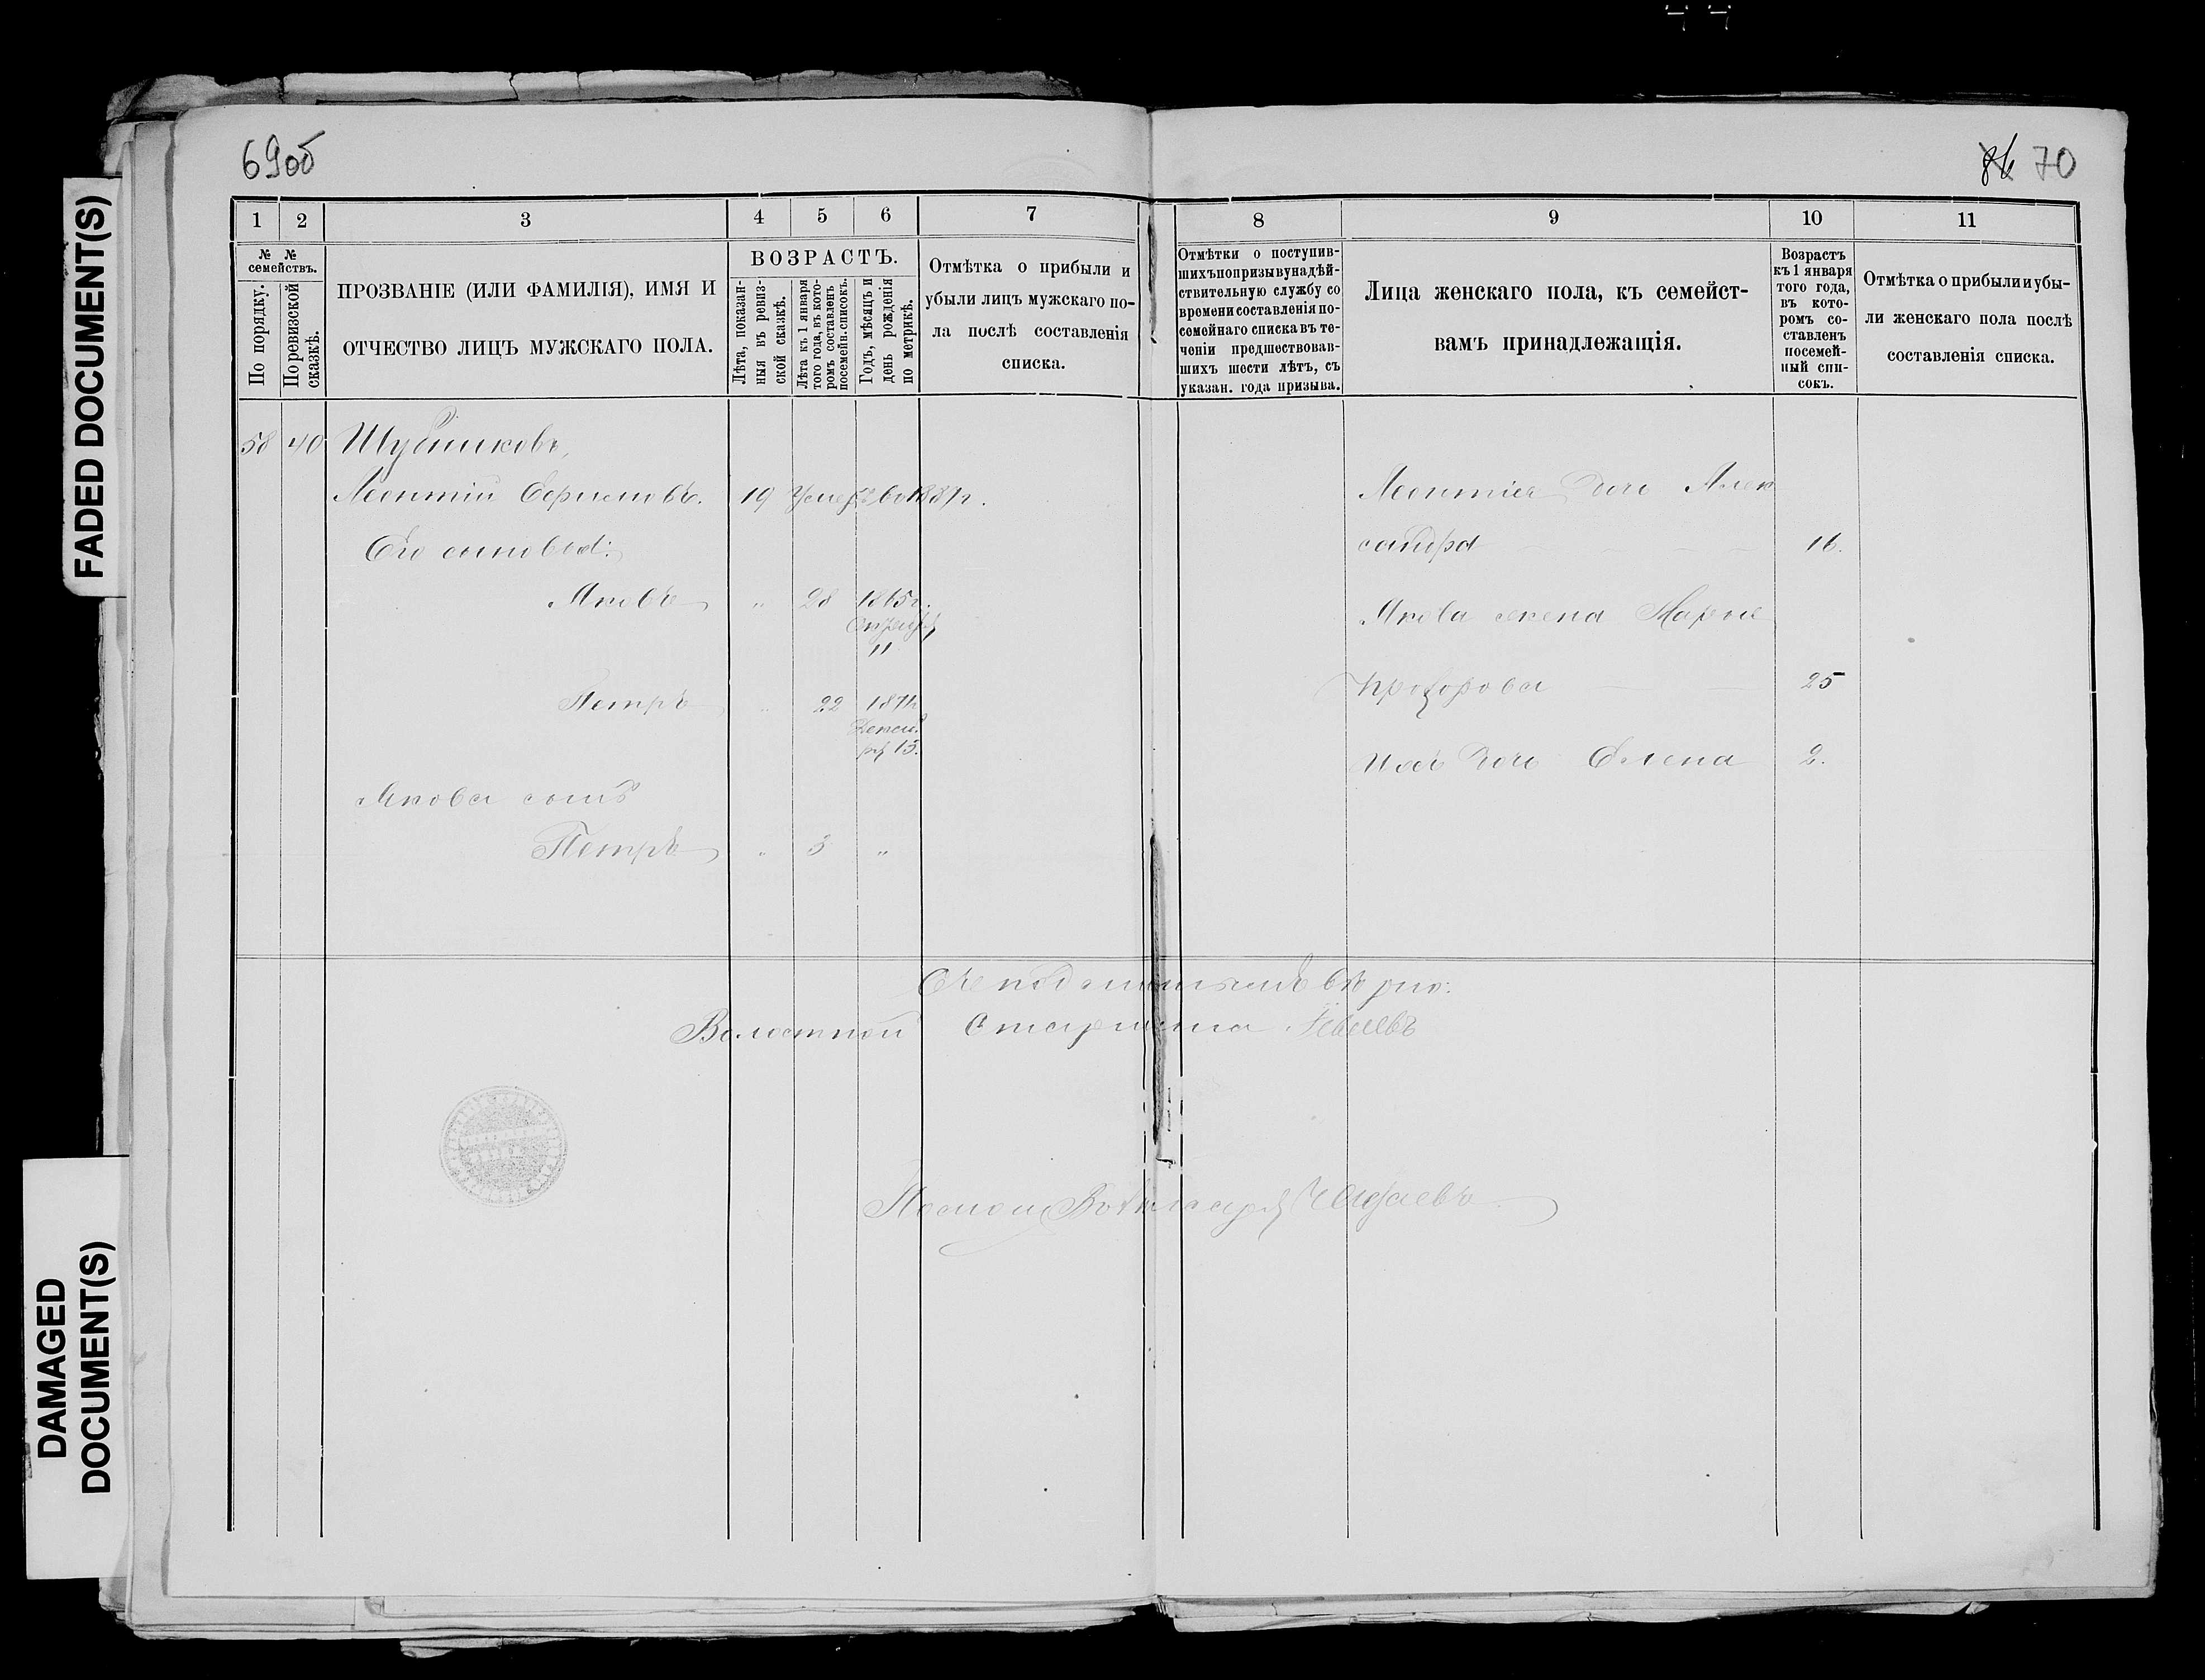 69об
86 70
FADED DOCUMENT(S)
DAMAGED
DOCUMENT(S)
1 2 3 4 5 6 7
№ №
семействъ.
По порядку.
По ревизской
сказкѣ.
ПРОЗВАНІЕ (ИЛИ ФАМИЛІЯ), ИМЯ И
ОТЧЕСТВО ЛИЦЪ МУЖСКАГО ПОЛА.
ВОЗРАСТЪ.
Лѣта, показан-
ныя въ ревиз-
ской сказкѣ.
Лѣта къ 1 января
того года, въ кото-
ромъ составленъ
посемейн. списокъ.
Годъ, мѣсяцъ и
день рожденія
по метрикѣ.
Отмѣтка о прибыли и
убыли лицъ мужскаго по-
ла послѣ составленія
списка.
8 9 10 11
Отмѣтки о поступив-
шихъ по призыву на дѣй-
ствительную службу со
времени составленія по-
семейнаго списка въ те-
ченіи предшествовав-
шихъ шести лѣтъ, съ
указан. года призыва.
Лица женскаго пола, къ семейст-
вамъ принадлежащія.
Возрастъ
къ 1 января
того года,
въ кото-
ромъ со-
ставленъ
посемей-
ный спи-
сокъ.
Отмѣтка о прибыли и убы-
ли женскаго пола послѣ
составленія списка.
58 40 Шубниковъ,
Леонтій Ефимовъ. 19 Умеръ во 1887г.
Его сыновья:
Яковъ " 28 1865г.
Октября
11
Петръ " 22 1871г.
Декаб
ря 15.
Якова сынъ
Петръ " 3 "
Леонтія дочь Алек
сандра 16.
Якова жена Марья
Прохорова 25
Ихъ дочь Елена 2.
Съ подлиннымъ вѣрно:
Волостной Старшина